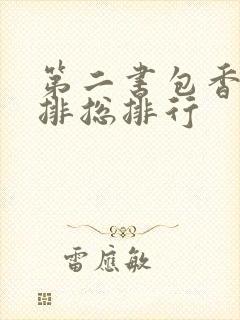 第二书包香
排总排行
雷应敏